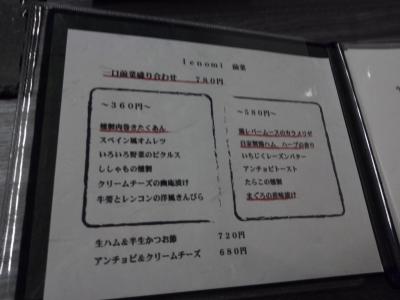 Ienomi 前菜
一口前菜盛り合わせ 780円
～360円～
燻製肉巻きたくあん
スペイン風オムレツ
いろいろ野菜のピクルス
ししゃもの燻製
クリームチーズの醤油漬け
牛蒡とレンコンの洋風きんぴら
～580円～
鶏レバームースのカラメリゼ
自家製鶏ハム、ハーブの香り
いちじくレーズンバター
アンチョビトースト
たらこの燻製
まぐろの
生ハム＆半生かつお節 720円
アンチョビ＆クリームチーズ 680円